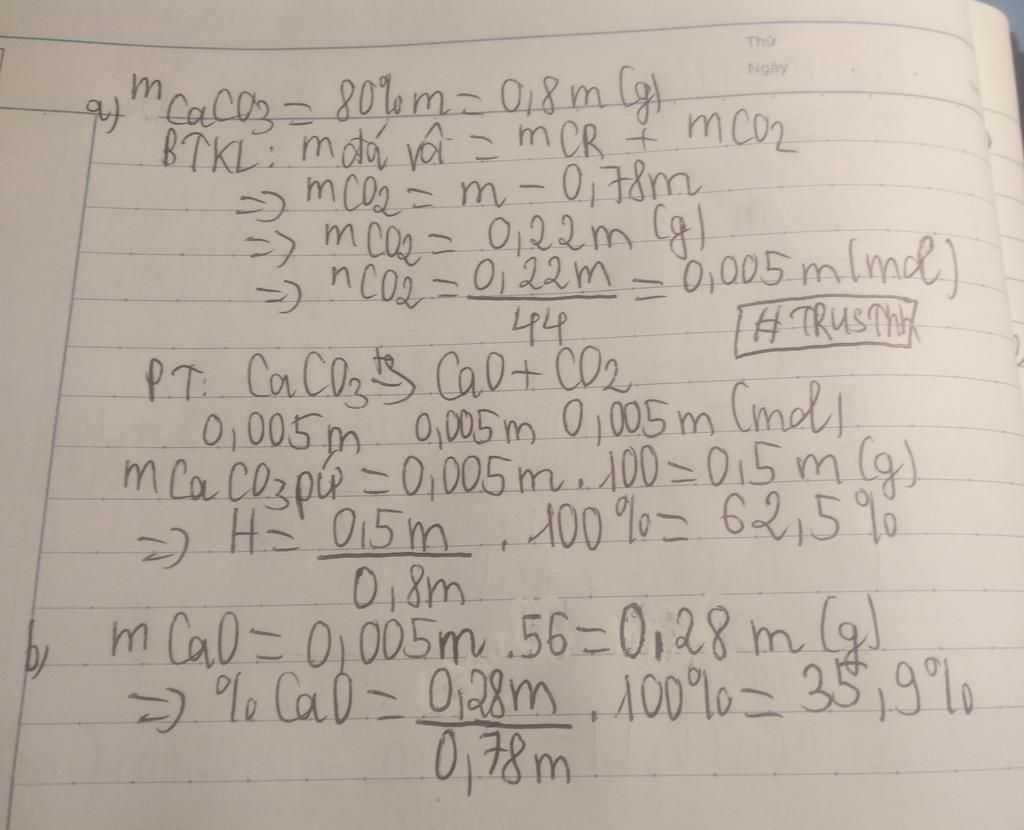 Thứ
Ngày
a) mCaCO3 = 80%m = 0,8m (g)
BTKL: m đá vôi = mCR + mCO2
=> mCO2 = m - 0,78m
=> mCO2 = 0,22m (g)
=> nCO2 = 0,22m / 44 = 0,005m (mol)
#TRUSThh
PT: CaCO3 -t°-> CaO + CO2
0,005m 0,005m 0,005m (mol)
mCaCO3 pứ = 0,005m . 100 = 0,5m (g)
=> H = 0,5m / 0,8m . 100% = 62,5%
b) mCaO = 0,005m . 56 = 0,28m (g)
=> %CaO = 0,28m / 0,78m . 100% = 35,9%